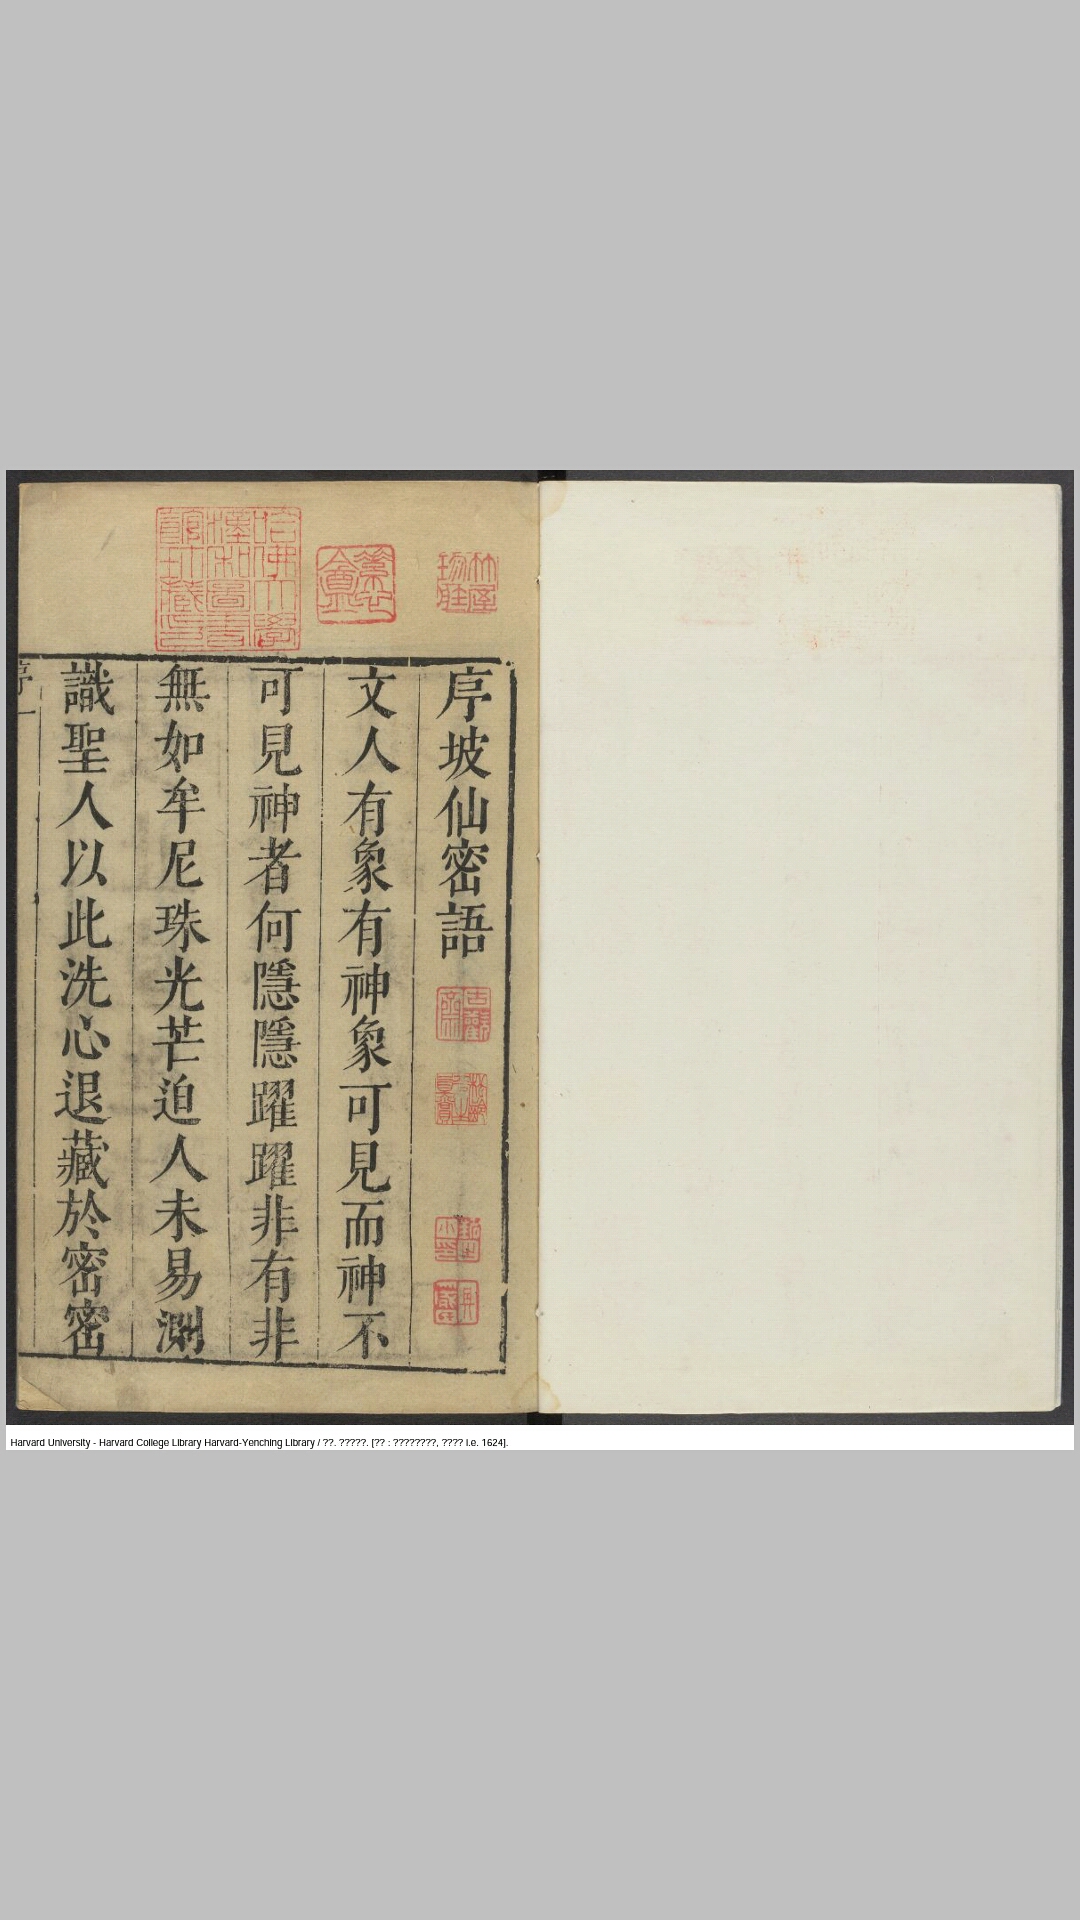 序坡仙密語
文人有象有神象可見而神不
可見神者何隱隱躍躍非有非
無如牟尼珠光芒迫人未易測
識聖人以此洗心退藏於密密
序 一
哈佛大學
漢和圖書
館珍藏印
Harvard University - Harvard College Library Harvard-Yenching Library / ??. ?????. [?? : ????????, ???? i.e. 1624].